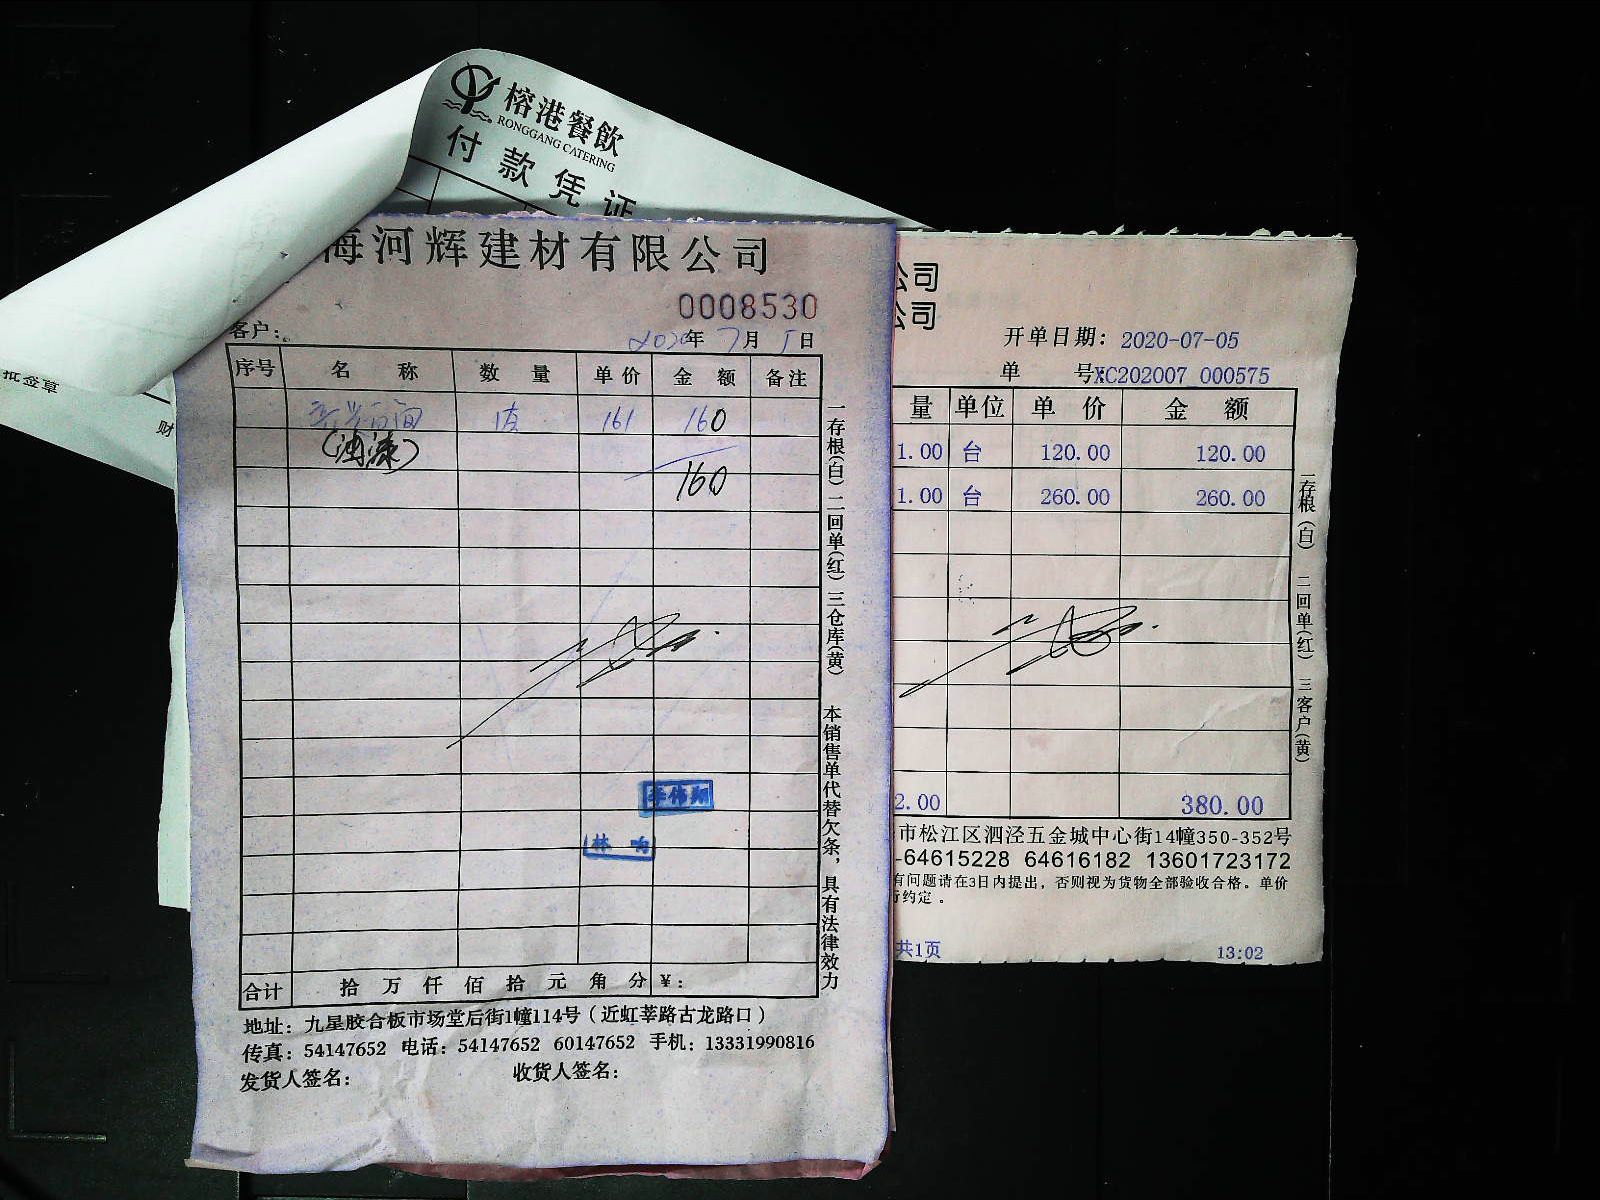 榕港餐飲
RONGGANG CATERING
付款凭证
批签章
财
海河辉建材有限公司
0008530
客户:
2020年7月5日
序号 名称 数量 单价 金额 备注
161 160
(油漆)
160
合计 拾万仟佰拾元角分 ¥:
地址: 九星胶合板市场堂后街1幢114号(近虹莘路古龙路口)
传真: 54147652 电话: 54147652 60147652 手机: 13331990816
发货人签名: 收货人签名:
一存根(白) 二回单(红) 三仓库(黄) 本销售单代替欠条,具有法律效力
李伟
林响
公司
公司
开单日期: 2020-07-05
单号: XC202007 000575
量 单位 单价 金额
1.00 台 120.00 120.00
1.00 台 260.00 260.00
2.00 380.00
市松江区泗泾五金城中心街14幢350-352号
-64615228 64616182 13601723172
有问题请在3日内提出,否则视为货物全部验收合格。单价
行约定。
共1页 13:02
一存根(白) 二回单(红) 三客户(黄)